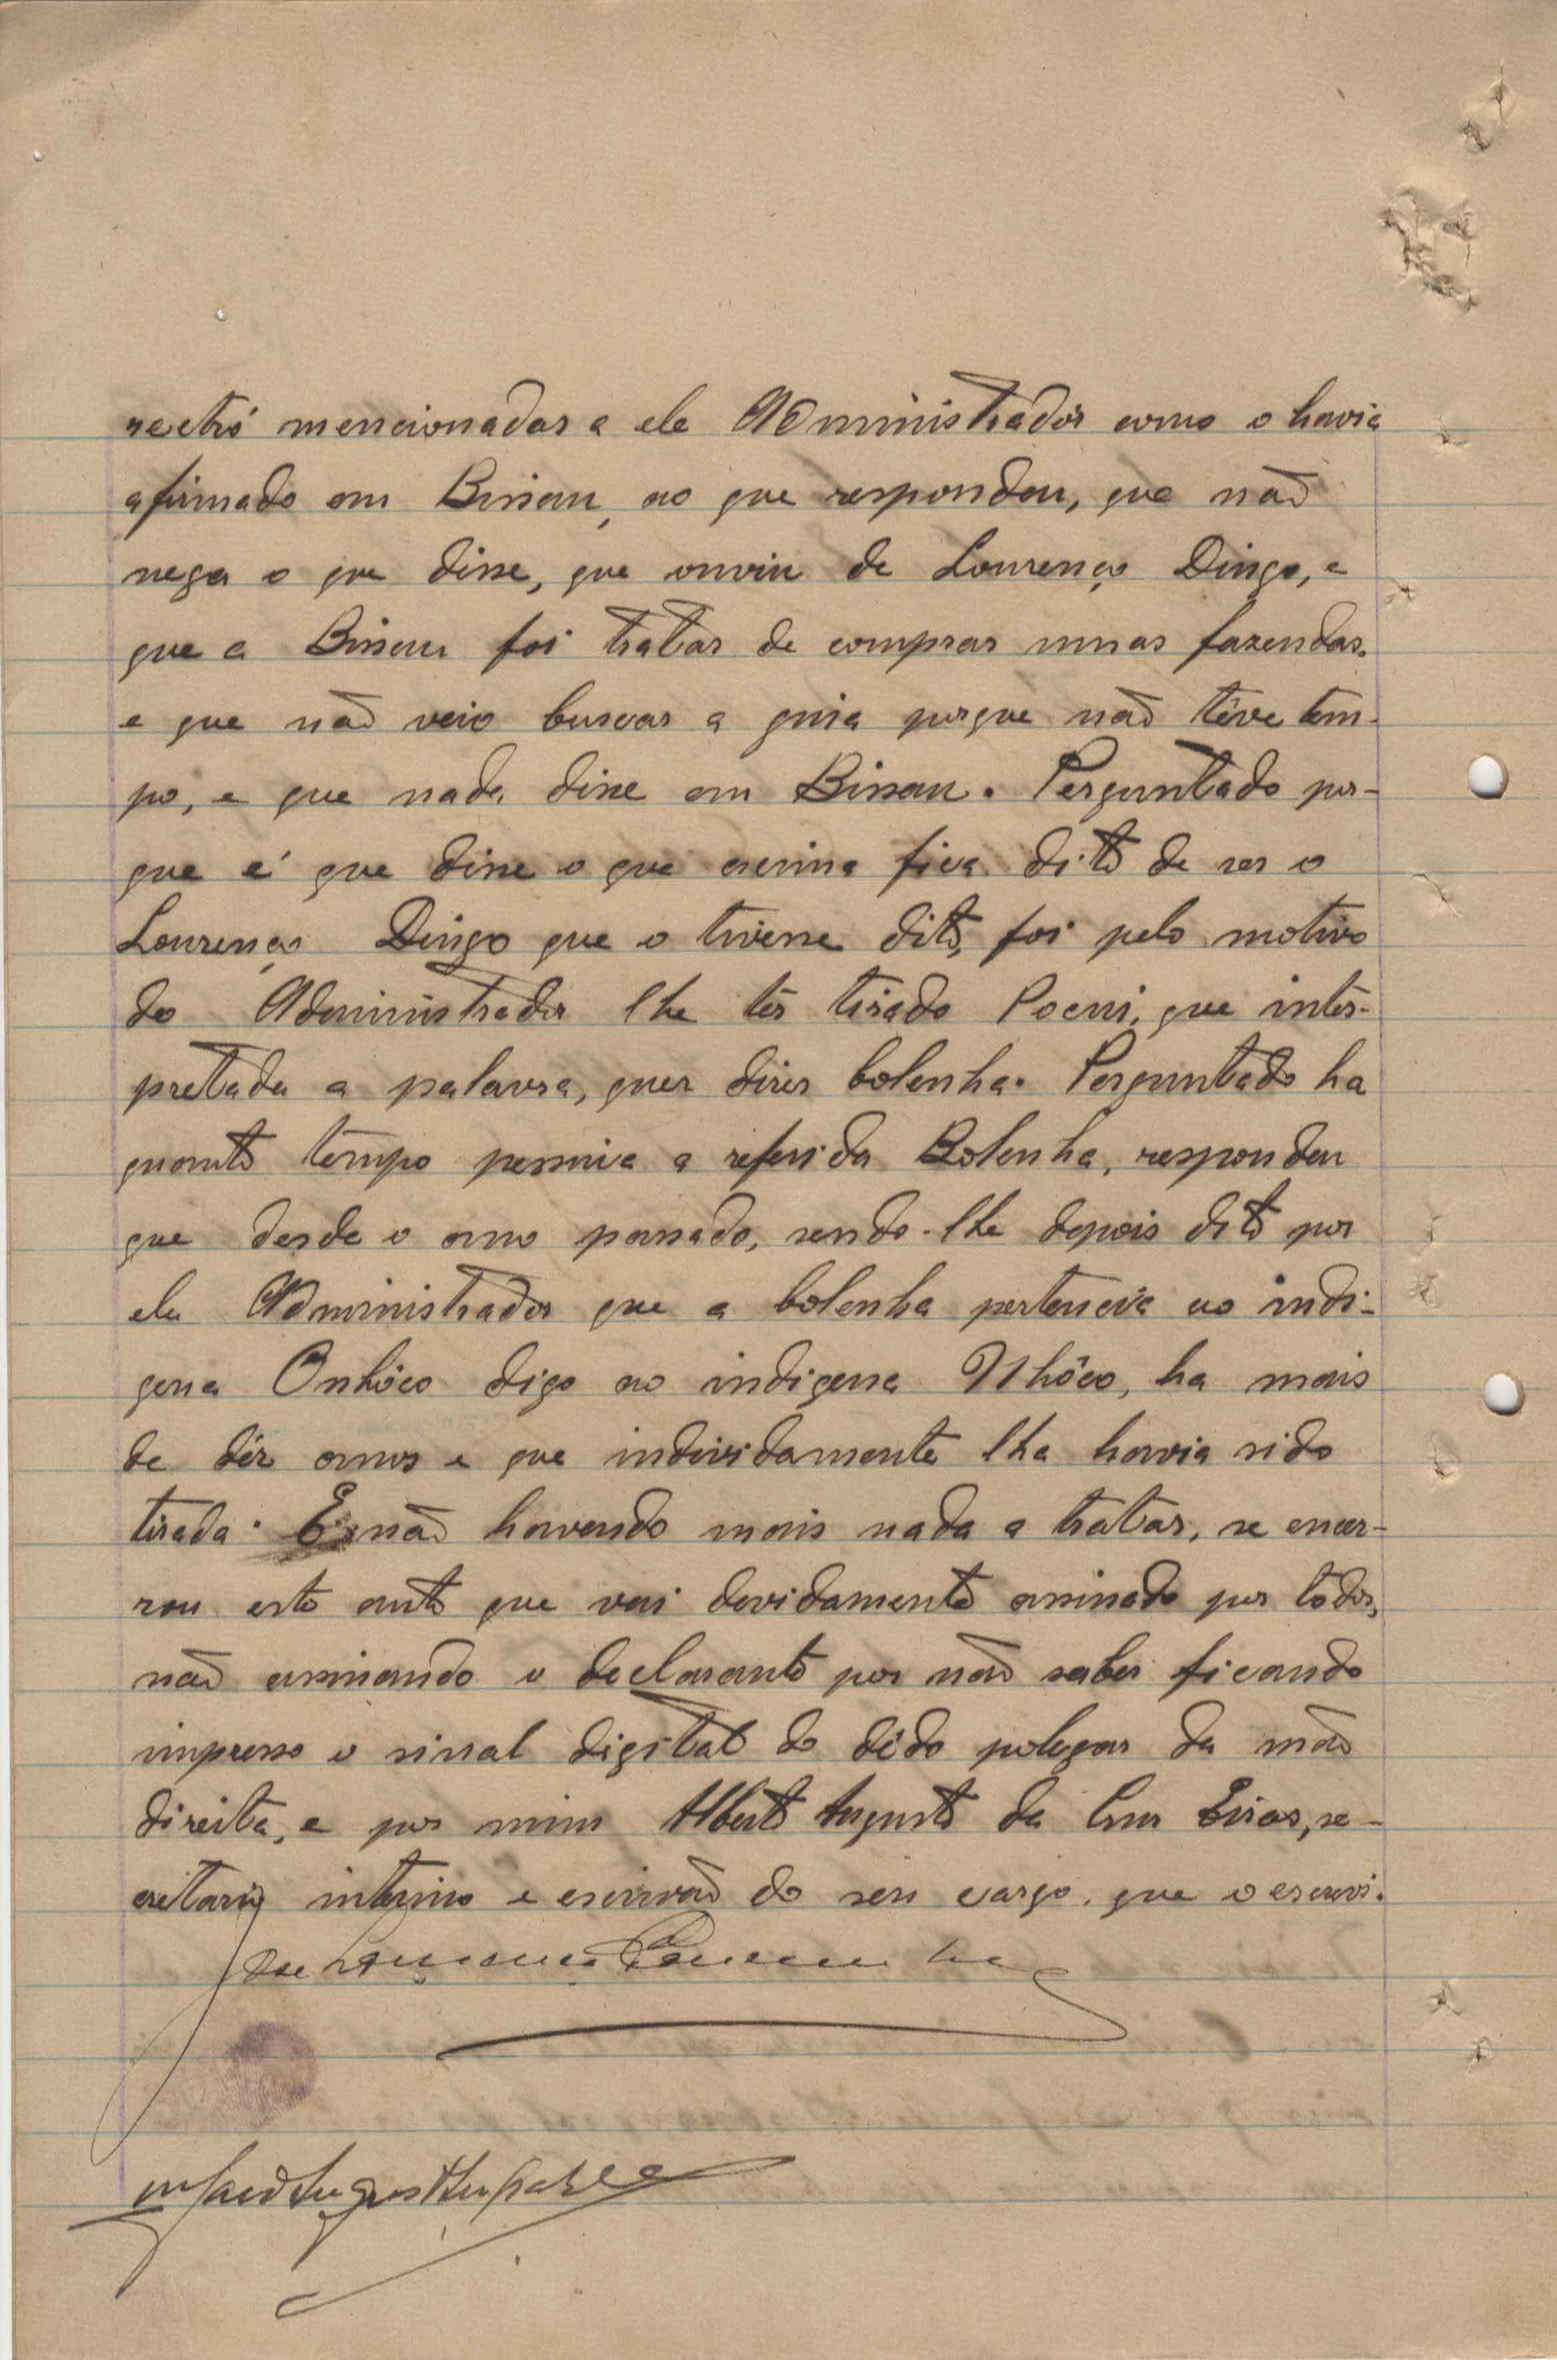 retró mencionadas a ele Administrador como o havia
afirmado em Bissau, ao que respondeu, que não
nega o que disse, que ouviu de Lourenço Dingo, e
que a Bissau foi tratar de comprar umas fazendas,
e que não veio buscar a guia porque não têve tem-
po, e que nada disse em Bissau. Perguntado por-
que é que disse o que acima fica dito de ser o
Lourenço Dingo que o tivesse dito, foi pelo motivo
do Administrador lhe têr tirado Pocni, que inter-
pretada a palavra, quer dizer bolenha. Perguntado ha
quanto tempo possuia a referida Bolenha, respondeu
que desde o ano passado, sendo-lhe depois dito por
ele Administrador que a bolenha pertencia ao indi-
gena Onhôco digo ao indigena Nhôco, ha mais
de déz anos e que individamente lha havia sido
tirada. E não havendo mais nada a tratar, se encer-
rou este auto que vai devidamente assinado por todos,
não assinando o declarante por não saber ficando
impresso o sinal digital do dêdo polegar da mão
direita, e por mim Alberto Augusto da Cruz Eiras, se-
cretario interino e escrivão do seu cargo, que o escrevi.